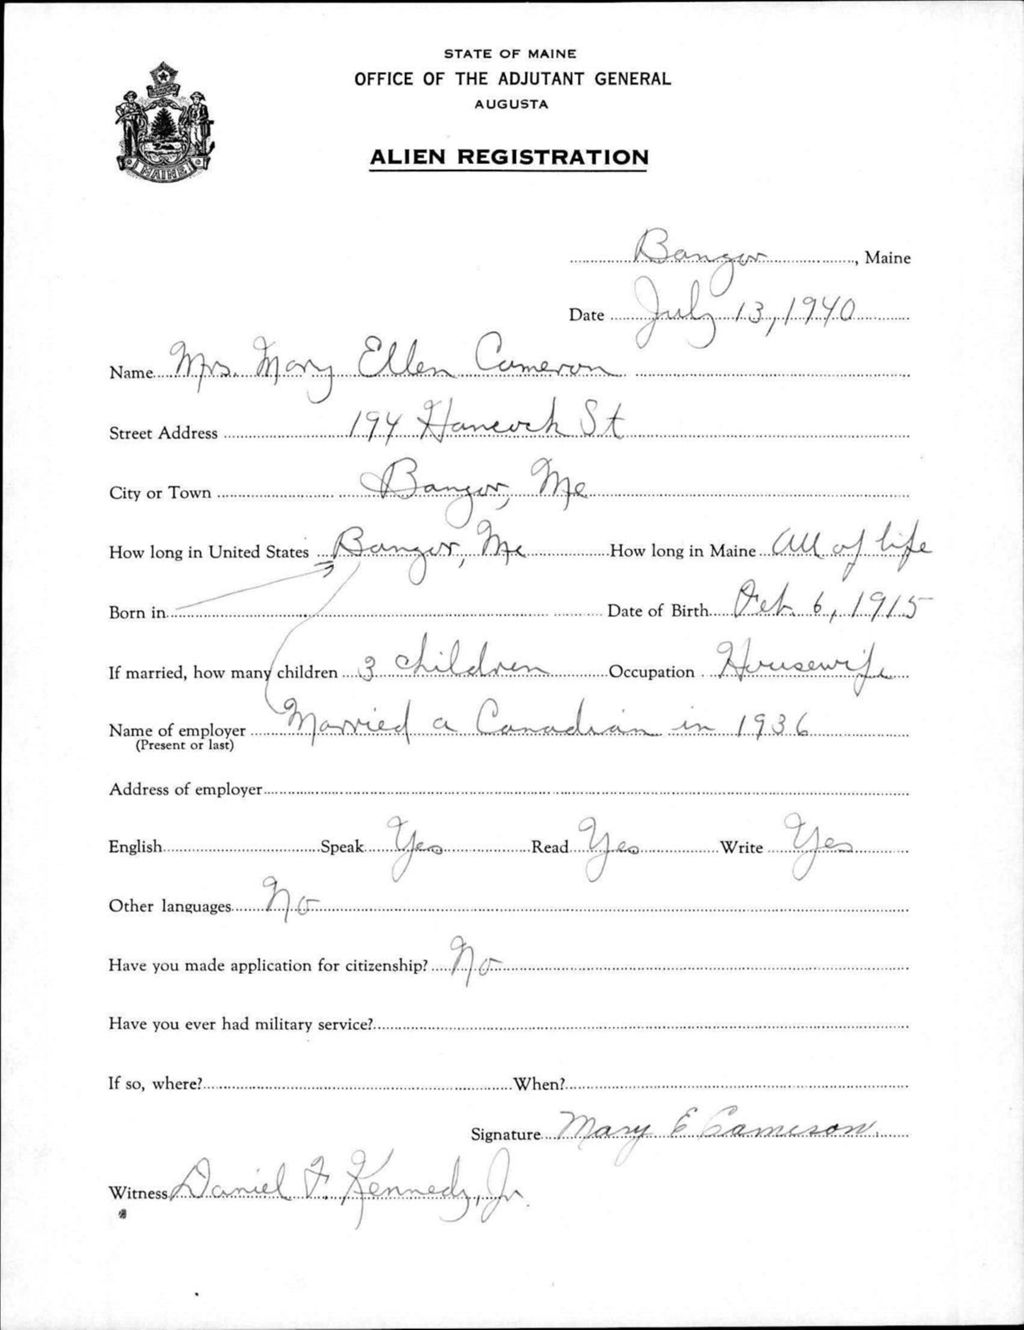 STATE OF MAINE
OFFICE OF THE ADJUTANT GENERAL
AUGUSTA
MAINE
ALIEN REGISTRATION
Bangor, Maine
Date July 13, 1940
Name Mrs. Mary Ellen Cameron
Street Address 194 Hancock St
City or Town Bangor, Me
How long in United States Bangor, Me How long in Maine All of life
Born in Date of Birth Oct 6, 1915
If married, how many children 3 children Occupation Housewife
Name of employer Married a Canadian in 1936
(Present or last)
Address of employer
English Speak Yes Read Yes Write Yes
Other languages No
Have you made application for citizenship? No
Have you ever had military service?
If so, where? When?
Signature Mary E Cameron
Witness Daniel F. Kennedy, Jr.